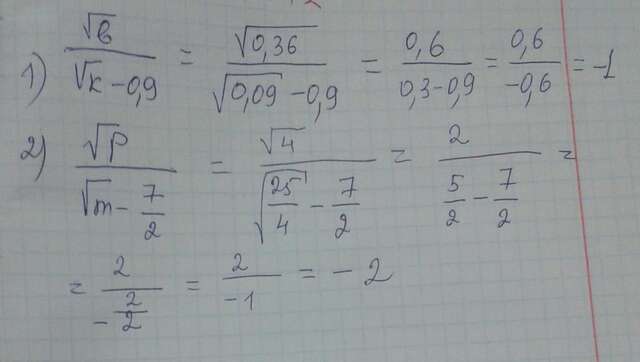 1) √в / (√к - 0,9) = √0,36 / (√0,09 - 0,9) = 0,6 / (0,3 - 0,9) = 0,6 / -0,6 = -1
2) √p / (√m - 7/2) = √4 / (√25/4 - 7/2) = 2 / (5/2 - 7/2) =
= 2 / (- 2/2) = 2 / -1 = - 2